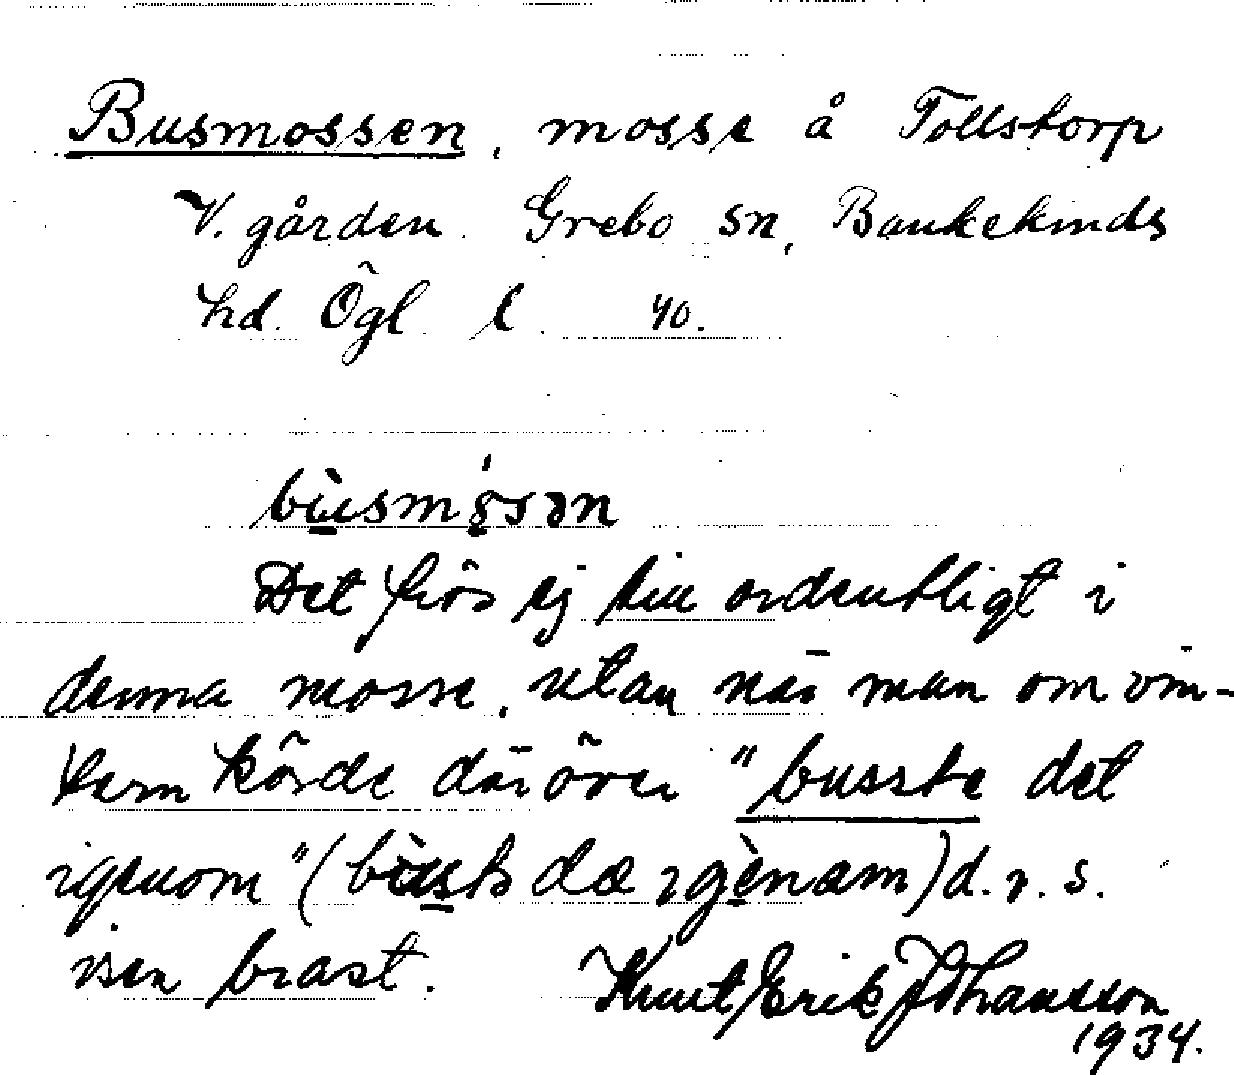 Busmossen, mosse å Tollstorp
V. gården. Grebo sn, Bankekinds
hd. Ögl. l. 40.
bùsmósən
Det frös ej till ordentligt i
denna mosse, utan när man om vin-
tern körde däröver "busste det
igenom" (bùstə dæ ɪgènəm) d. v. s.
isen brast. Knut Erik Johansson
1934.